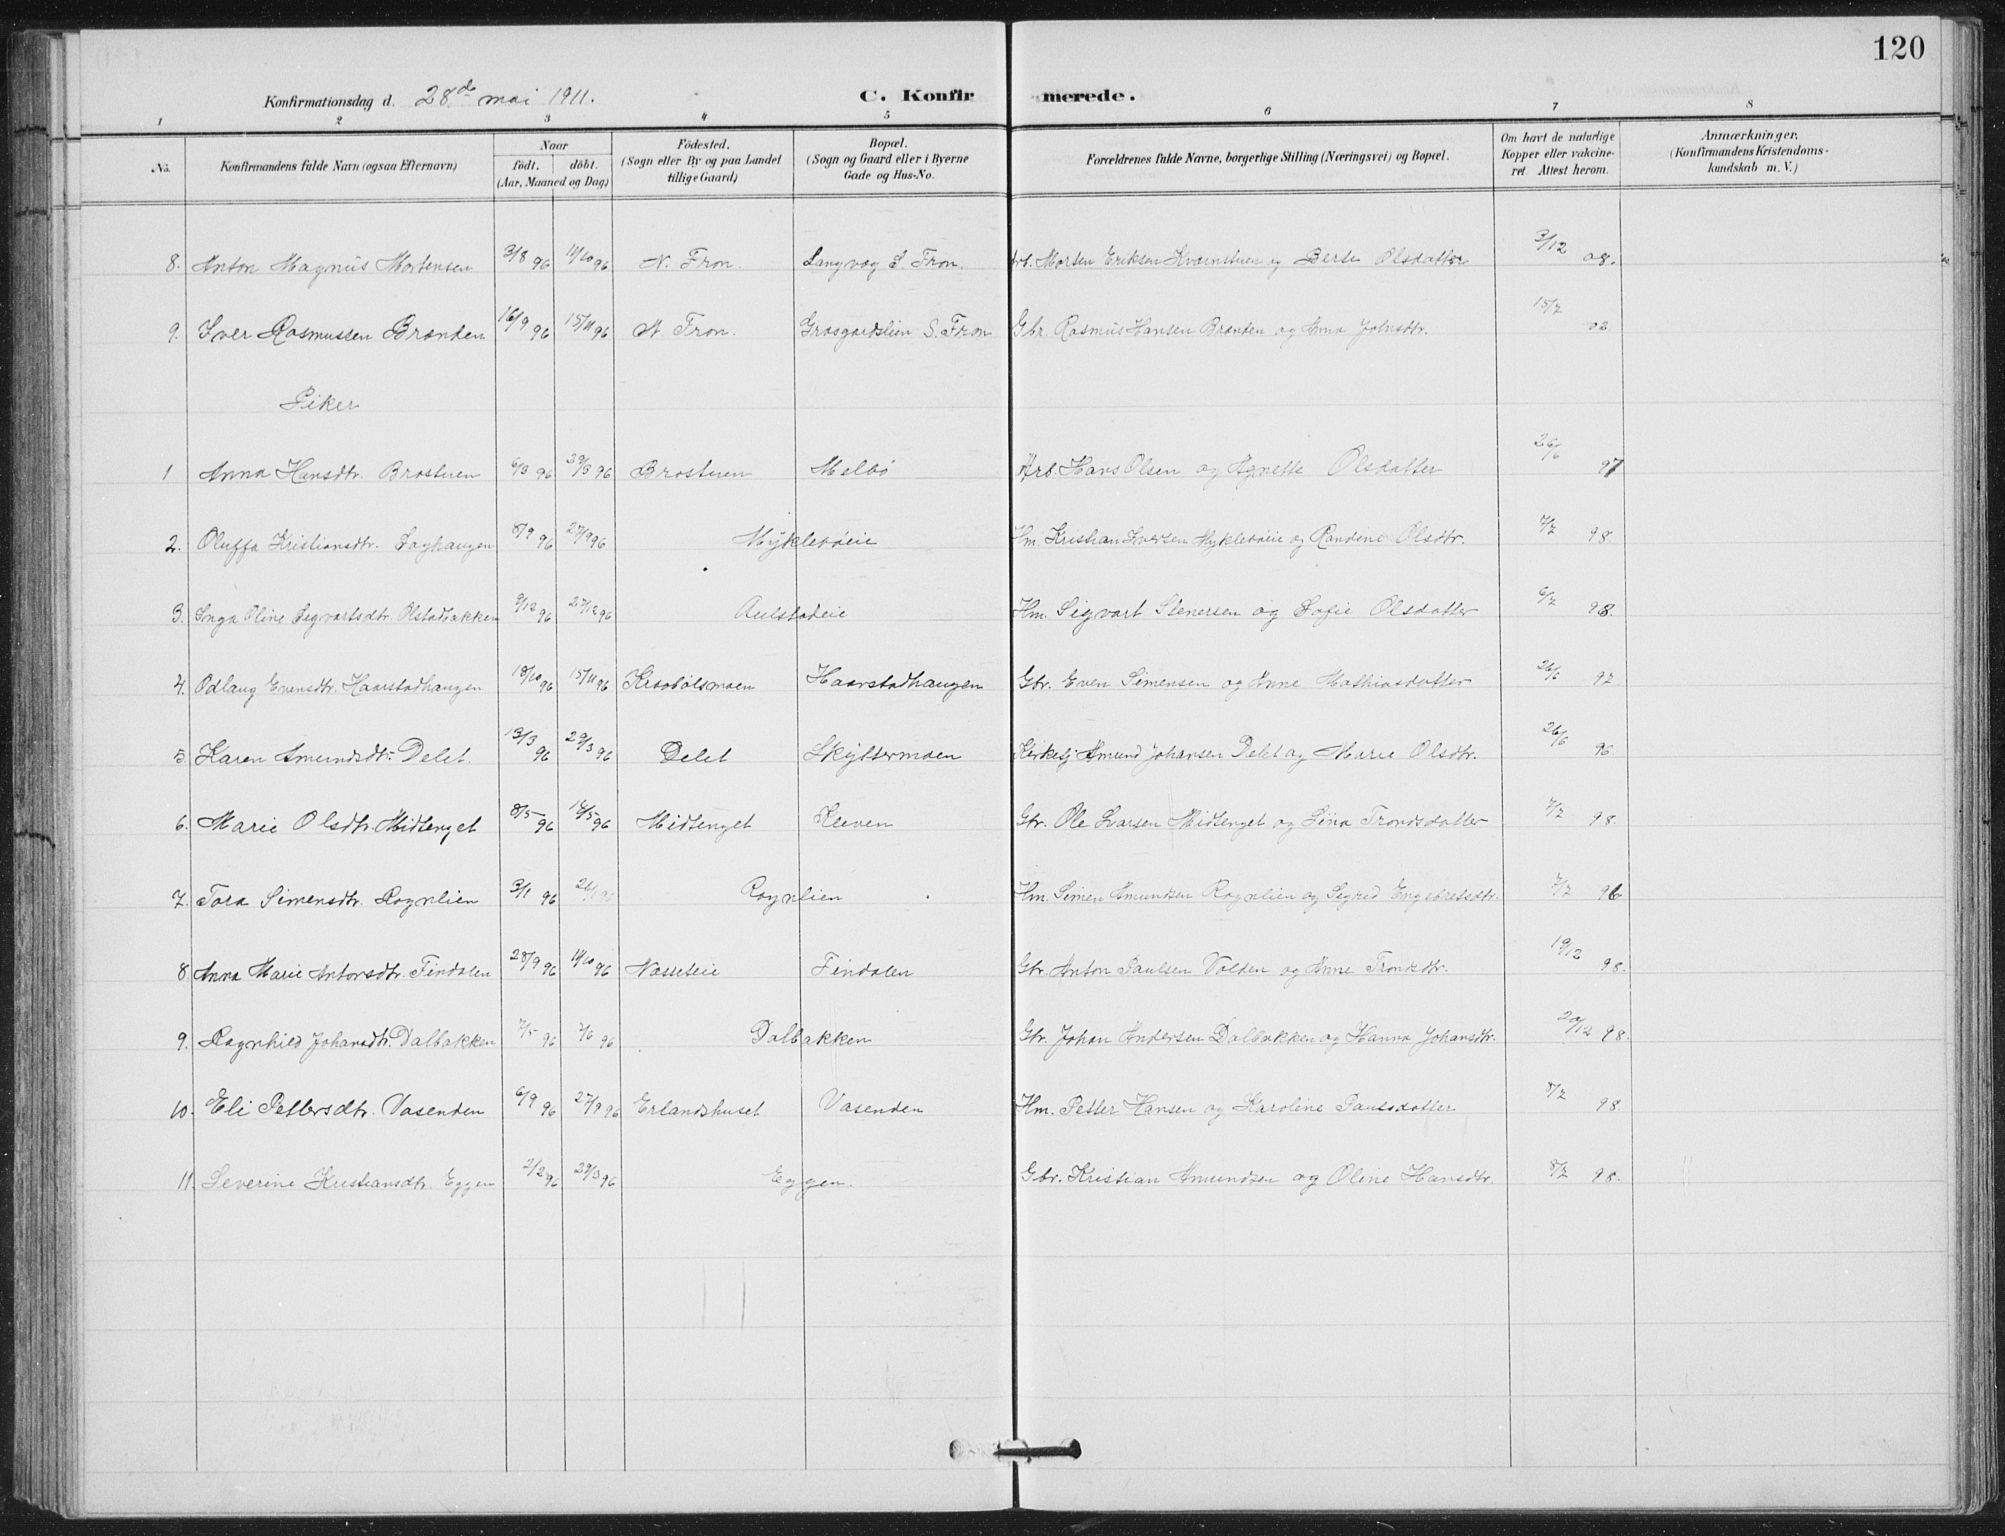 120
Konfirmationsdag d. 28de mai 1911. C. Konfirmerede.
1 2 3 4 5 6 7 8
No. Konfirmandens fulde Navn (ogsaa Efternavn) Naar födt. döbt. (Aar, Maaned og Dag) Födested. (Sogn eller By og paa Landet tillige Gaard) Bopæl. (Sogn og Gaard eller i Byerne Gade og Hus-No. Forældrenes fulde Navne, borgerlige Stilling (Næringsvei) og Bopæl. Om havt de naturlige Kopper eller vakcineret. Attest herom. Anmærkninger. (Konfirmandens Kristendomskundskab m. V.)
8. Anton Magnus Mortensen 3/8 96 11/10 96 N. Fron. Langvag S. Fron. Arb. Morten Eriksen Kvarnstuen og Berte Olsdatter 3/12 08.
9. Iver Rasmussen Brænden 16/9 96 15/11 96 N. Fron. Graagardslien S. Fron Gbr. Rasmus Hansen Brænden og Anna Johnsdtr. 15/7 02
Piker
1 Anna Hansdtr. Brostuen 6/3 96 29/3 96 Brostuen Melbö Arb. Hans Olsen og Agnette Olsdatter 26/6 97
2. Oluffa Kristiansdtr. Saghaugen 8/9 96 27/9 96 Mykleböeie Hm. Kristian Iversen Mykleböeie og Randine Olsdtr. 7/7 98.
3. Inga Oline Sigvartsdtr. Olstadbakken 9/12 96 27/12 96 Aulstadeie Hm. Sigvart Stenersen og Sofie Olsdatter 6/7 98.
4. Odlaug Evensdtr. Haarstadhaugen 18/10 96 15/11 96 Kraabölsmoen Haarstadhaugen Gbr. Even Simensen og Anne Mathiasdatter 26/6 97
5. Karen Amundsdtr. Delet. 13/3 96 29/3 96 Delet Skyttermoen Kirkesj. Amund Johansen Delet og Marie Olsdtr. 26/6 96.
6. Marie Olsdtr. Midtenget 8/5 96 14/5 96 Midtenget Kleven Gbr. Ole Larsen Midtenget og Sina Trondsdatter 7/7 98.
7. Tora Simensdtr. Rognlien 3/1 96 26/1 96 Rognlien Hm. Simen Amundsen Rognlien og Sigrid Engebretsdtr. 7/7 96
8. Anna Marie Antonsdtr. Findalen 28/9 96 11/10 96 Næsseteie Findalen Gbr. Anton Paulsen Volden og Anne Trondsdtr. 19/12 98.
9. Ragnhild Johansdtr. Dalbakken 7/5 96 7/6 96 Dalbakken Gbr. Johan Andersen Dalbakken og Hanna Johansdtr. 20/12 98.
10. Eli Pettersdtr. Vasenden 6/9 96 27/9 96 Erlandshuset Vasenden Hm. Petter Hansen og Karoline Paulsdatter 8/7 98.
11. Severine Kristiansdtr. Eggen 2/2 96 29/3 96 Eggen. Gbr. Kristian Amundsen og Oline Hansdtr. 8/7 98.